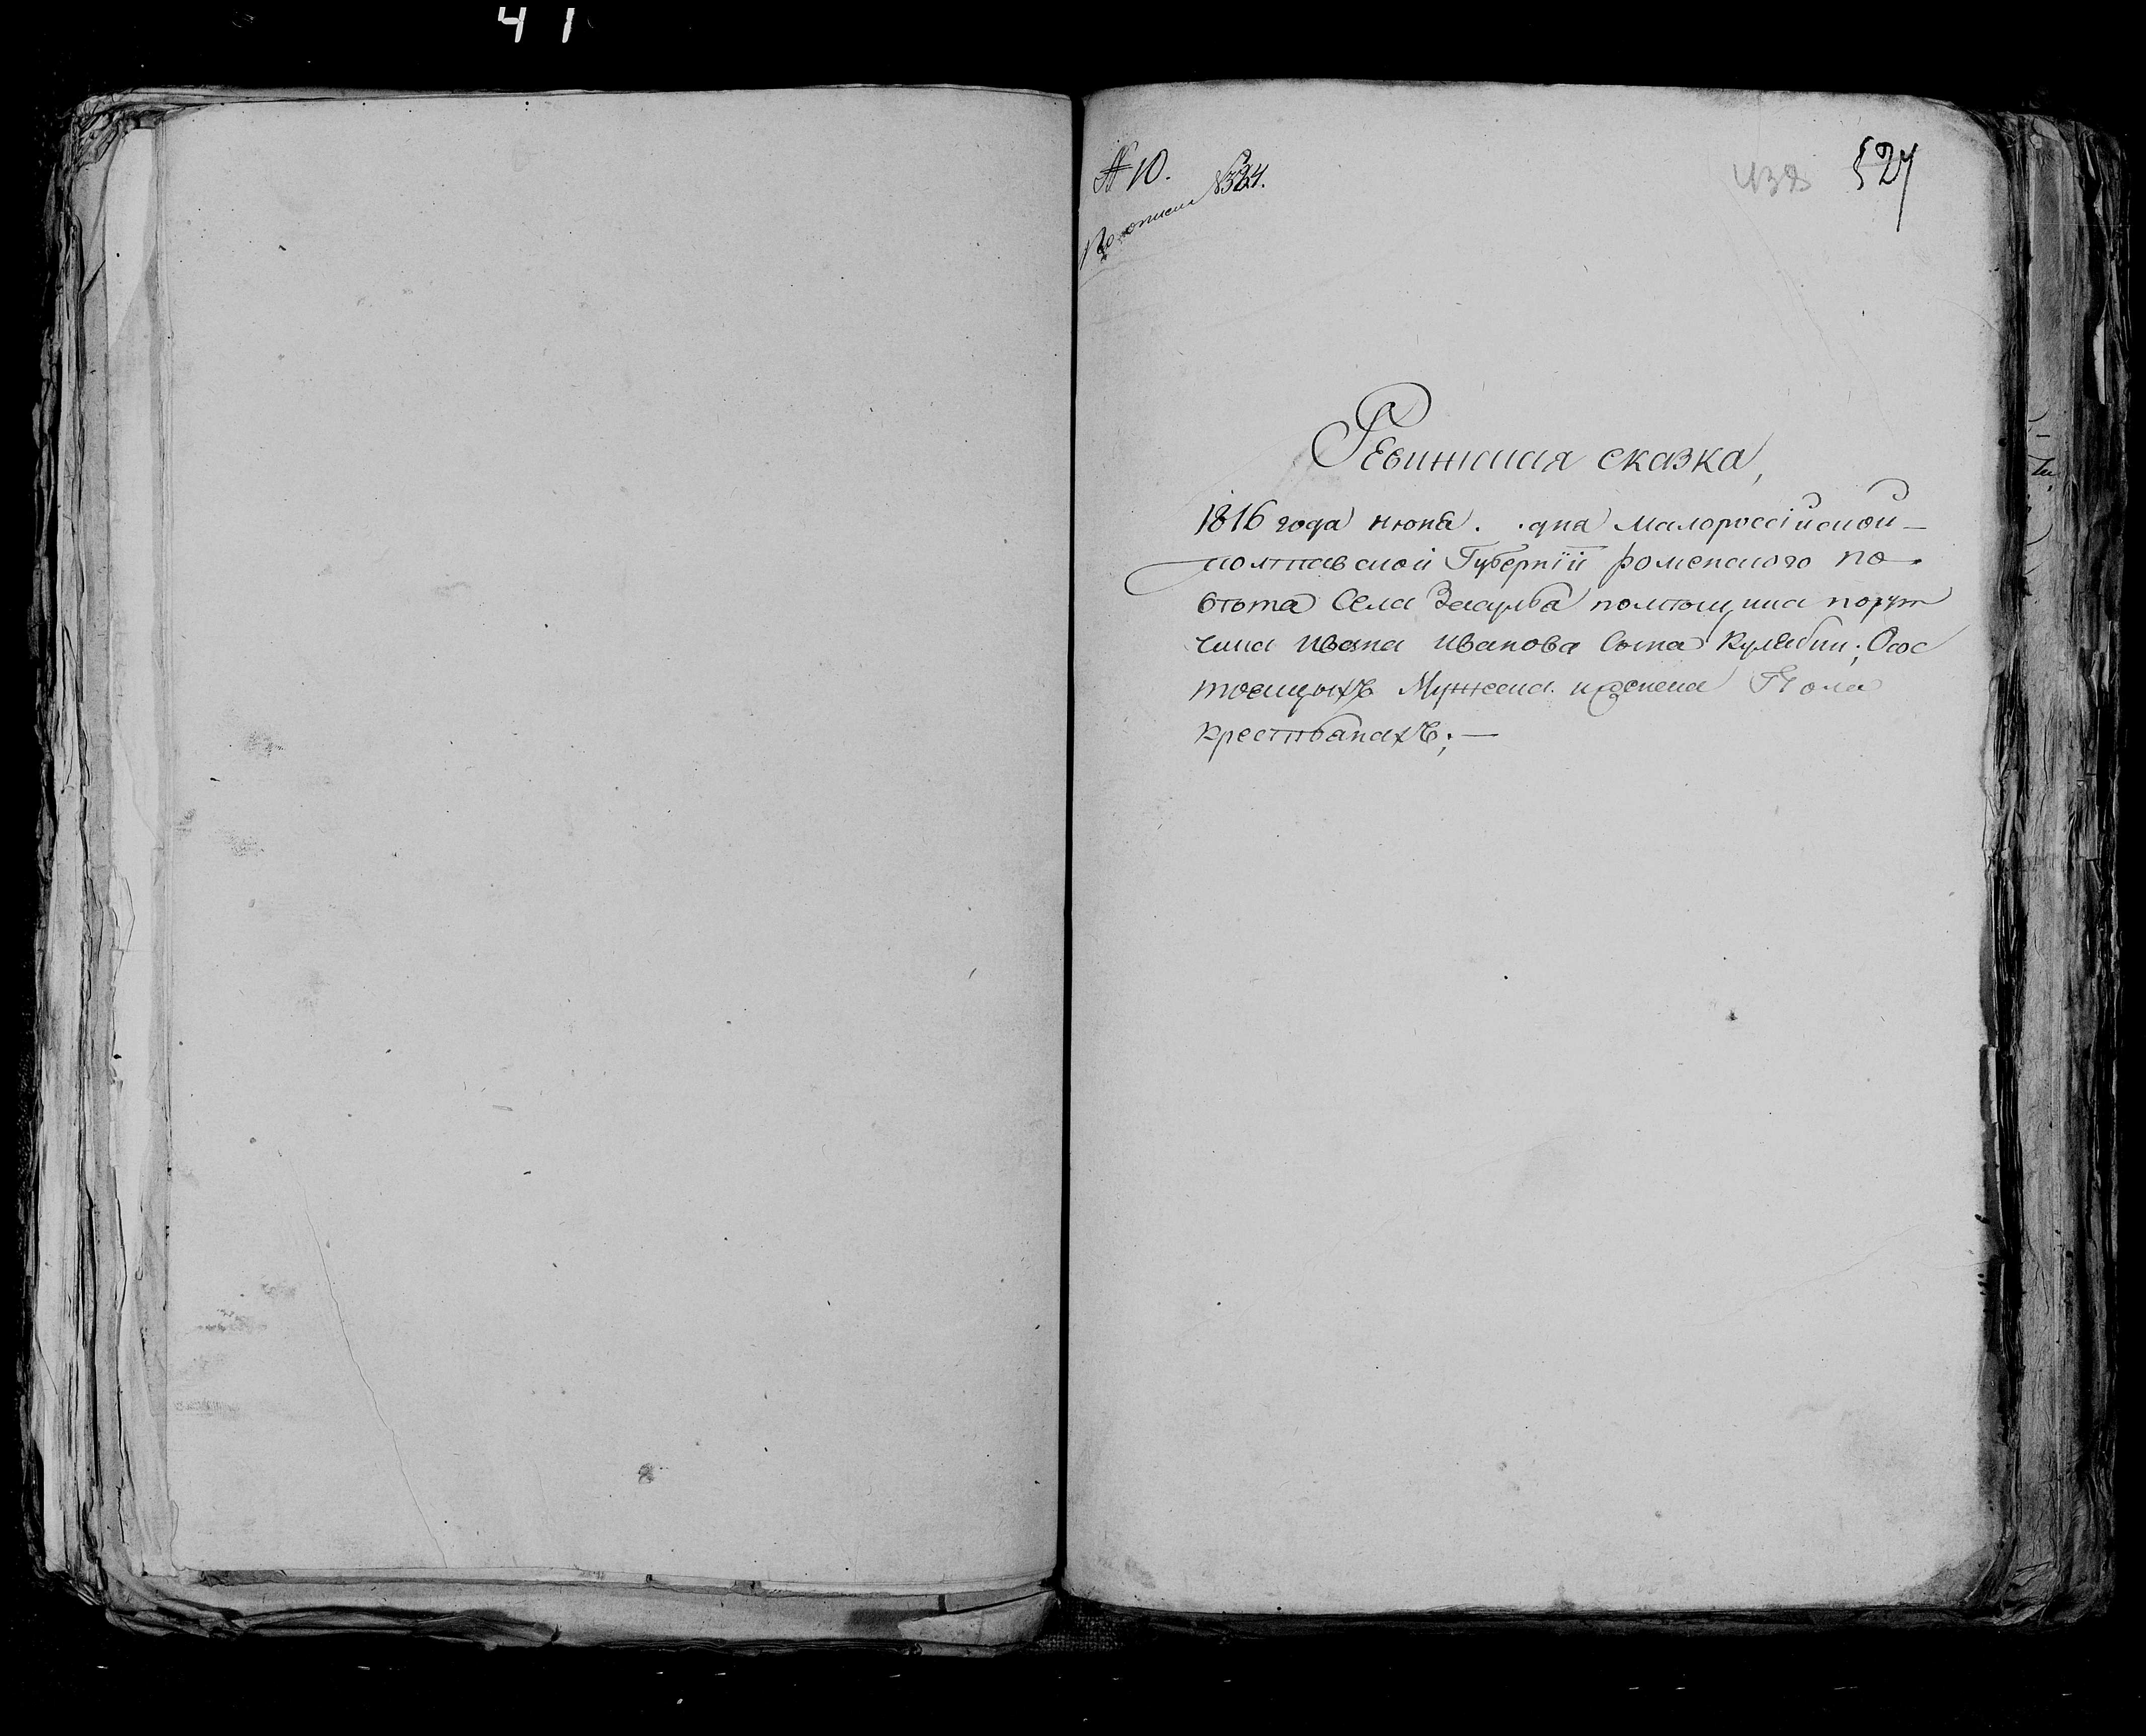 41
№ 10.
По описи № 324.
438 527
Ревижская сказка,
1816 года июня . . дня Малороссійской
полтавской Губерніи роменского по
вѣта Села Засулья помѣщика порут
чика ивана иванова Сына Кулябки; О сос
тоящихъ Мужеска и женска Пола
крестьянахъ; —